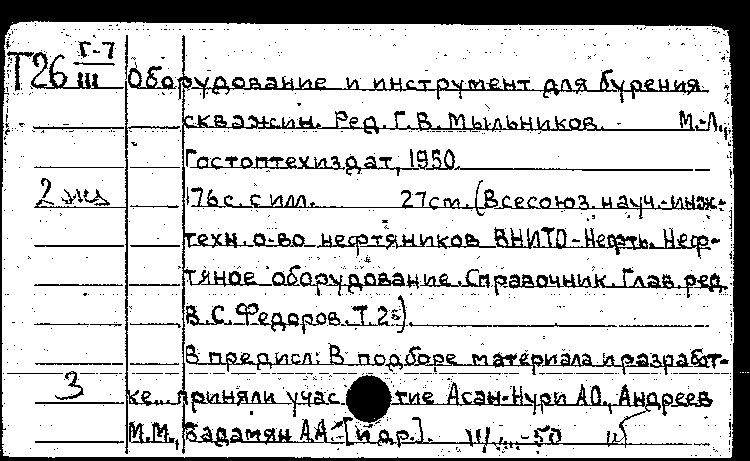 Т26 Г-7
III
Оборудование и инструмент для бурения
скважин. Ред. Г.В. Мыльников. М.-Л.,
Гостоптехиздат, 1950.
2 экз 176 с. с илл. 27 см. (Всесоюз. науч.-инж-
техн. о-во нефтяников ВНИТО-Нефть. Неф-
тяное оборудование. Справочник. Глав. ред.
В.С. Федоров. Т. 2).
В предисл: В подборе материала и разработ-
3 ке... приняли учас тие Асан-Нури АО., Андреев
М.М., Бадамян А.А. [и др.]. -50